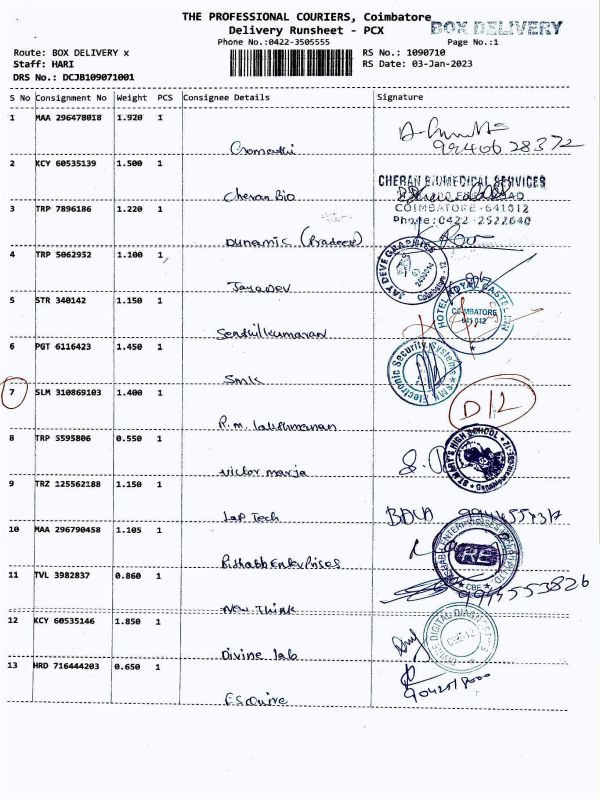 THE PROFESSIONAL COURIERS, Coimbatore
BOX DELIVERY
Delivery Runsheet - PCX
Phone No.:0422-3505555
Page No.:1
Route: BOX DELIVERY x
RS No.: 1090710
Staff: HARI
RS Date: 03-Jan-2023
DRS No.: DCJB109071001
S No Consignment No Weight PCS Consignee Details Signature
1 MAA 296478018 1.920 1
9940628372
Gomathi
2 KCY 60535139 1.500 1
CHERAN BIOMEDICAL SERVICES
Cheran Bio
COIMBATORE - 641012
3 TRP 7896186 1.220 1
Phone: 0422 - 2522640
Dunamic (Pradeev)
4 TRP 5062952 1.100 1
JAY DEVE GRAPHICS
Jayadev
5 STR 340142 1.150 1
HOTEL ROYAL
COIMBATORE
641 012
Senthilkumaran
6 PGT 6116423 1.450 1
SMK Electronic Security Systems
SMK
7 SLM 310869103 1.400 1
D12
R.m. lakshmanan
8 TRP 5595806 0.550 1
ST. MARY'S HIGH SCHOOL
victor maria
9 TRZ 125562188 1.150 1
Lap Tech
10 MAA 296790458 1.105 1
Rishabb Enterprises
11 TVL 3982837 0.860 1
CBE
9945553826
New Think
12 KCY 60535146 1.850 1
Divine lab
13 HRD 716444203 0.650 1
Esquire